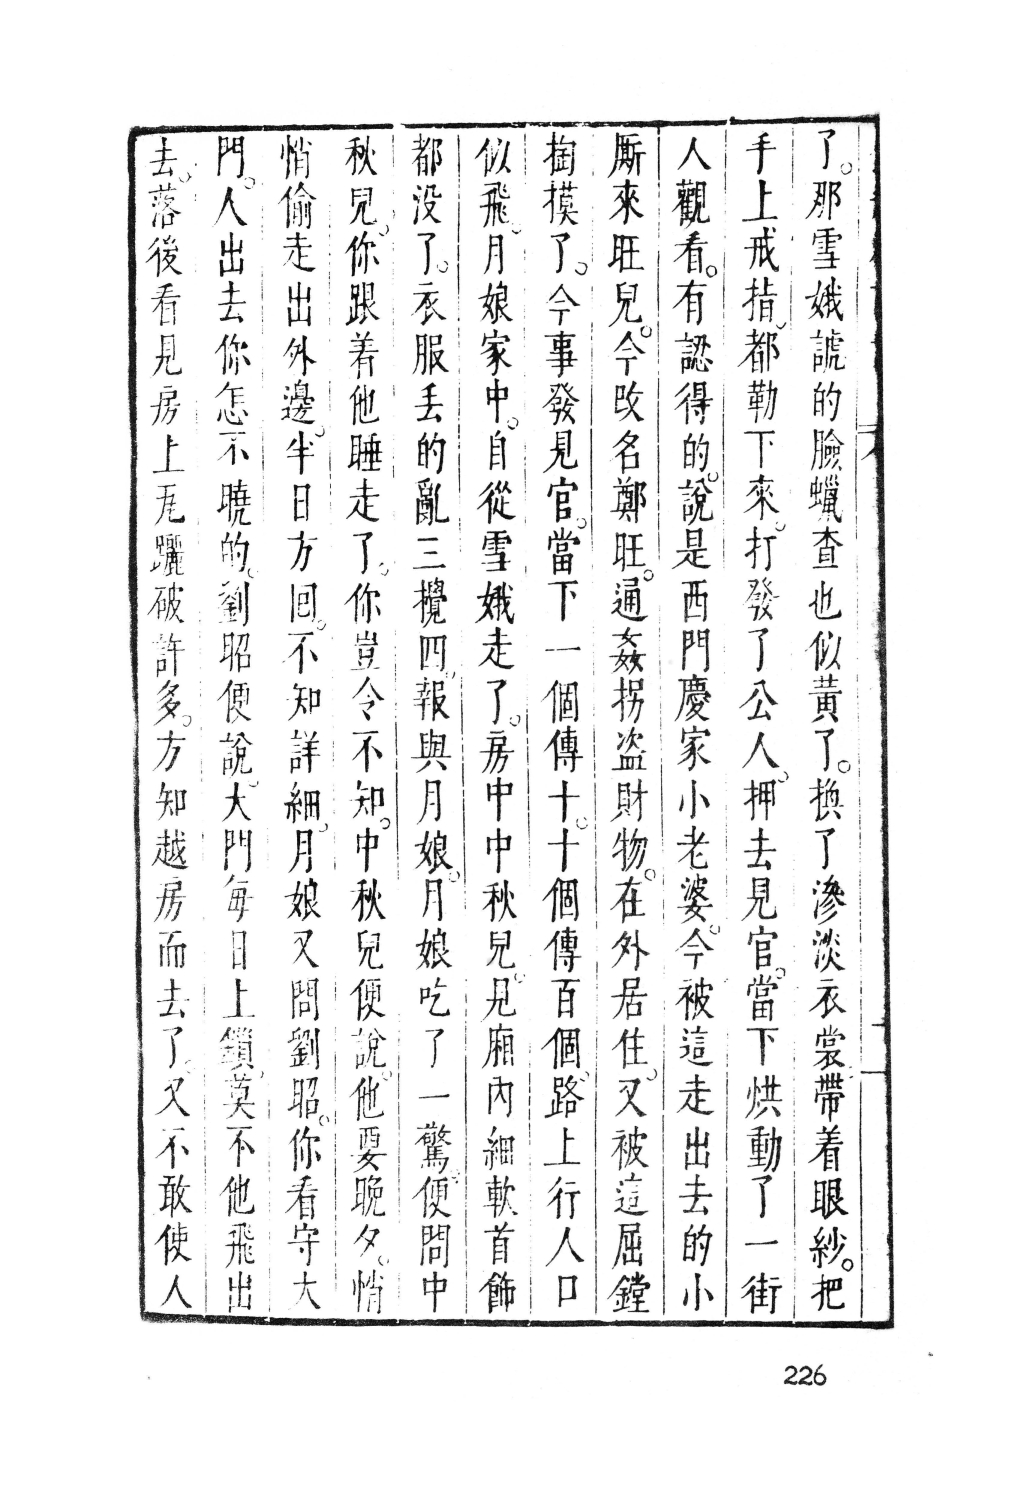 了。那雪娥諕的臉蠟查也似黃了。換了滲淡衣裳。帶着眼紗。把
手上戒指。都勒下來。打發了公人。押去見官。當下烘動了一街
人觀看。有認得的。說是西門慶家小老婆。今被這走出去的小
厮來旺兒。今改名鄭旺。通姦拐盜財物。在外居住。又被這屈鏜
掏摸了。今事發見官。當下一個傳十。十個傳百個。路上行人口
似飛。月娘家中。自從雪娥走了。房中中秋兒。見廂內細軟首飾
都没了。衣服丟的亂三攪四。報與月娘。月娘吃了一驚。便問中
秋兒。你跟着他睡走了。你豈令不知。中秋兒便說。他要晚夕。悄
悄偷走出外邊。半日方回。不知詳細。月娘又問劉昭。你看守大
門。人出去你怎不曉的。劉昭便說。大門每日上鎖。莫不他飛出
去。落後看見房上瓦躧破許多。方知越房而去了。又不敢使人
226